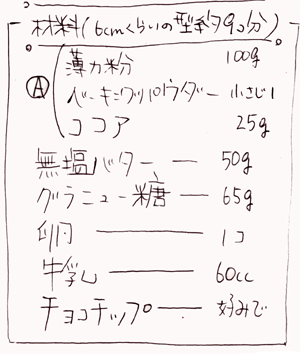 材料(6cmくらいの型約9コ分)
Ⓐ 薄力粉 100g
ベーキングパウダー 小さじ1
ココア 25g
無塩バター ― 50g
グラニュー糖 ― 65g
卵 ― 1コ
牛乳 ― 60cc
チョコチップ ― 好みで